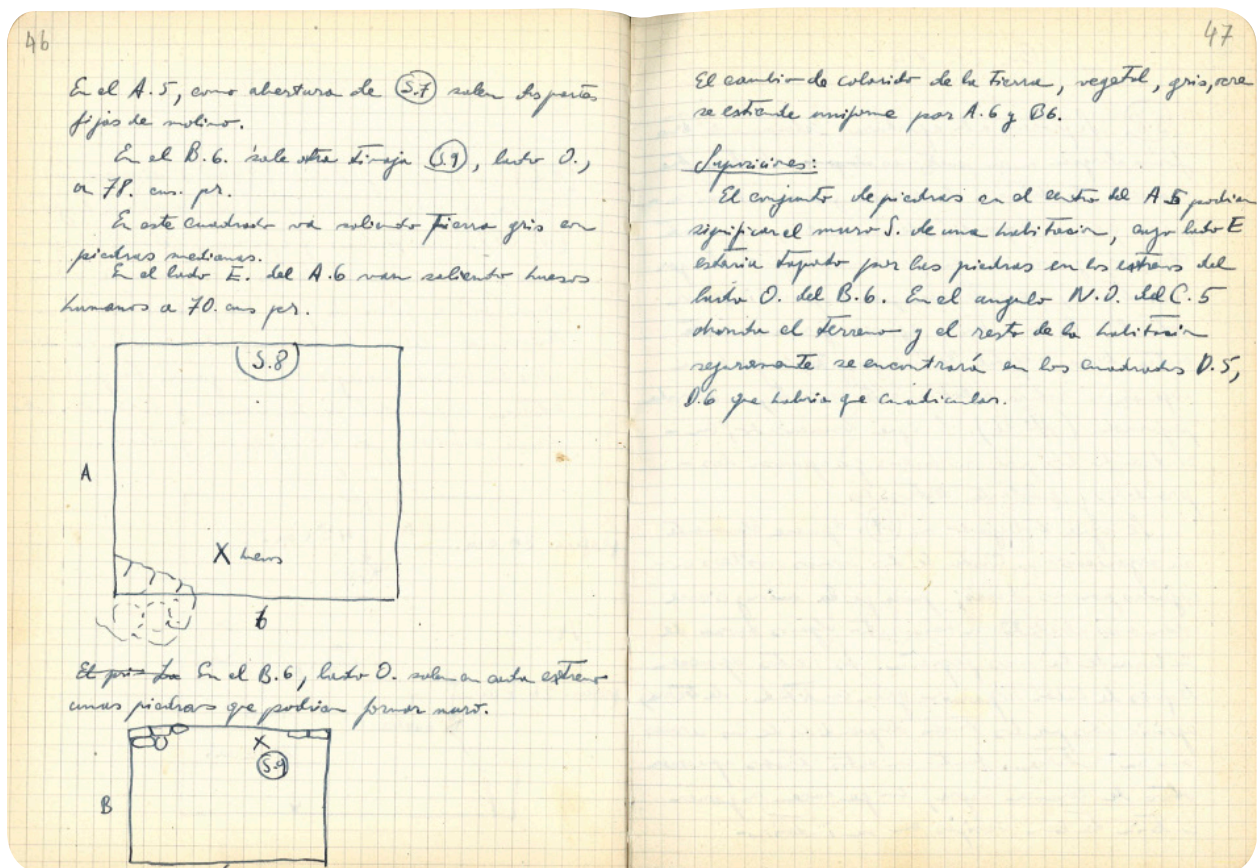 46
En el A.5, como abertura de S.7 salen dos partes
fijas de molino.
En el B.6. sale otra tinaja S.9, lado O.,
a 78. cms. pr.
En este cuadrado va saliendo tierra gris con
piedras medianas.
En el lado E. del A.6 van saliendo huesos
humanos a 70. cms pr.
S.8
A
X huesos
6
En el B.6, lado O. salen en cada extremo
unas piedras que podrian formar muro.
X
S.9
B
47
El cambio de colorido de la tierra, vegetal, gris,
se extiende uniforme por A.6 y B6.
Suposiciones:
El conjunto de piedras en el centro del A.5 podrian
significar el muro S. de una habitacion, cuyo lado E
estaria tapado por las piedras en los extremos del
lado O. del B.6. En el angulo N.O. del C.5
el terreno y el resto de la habitacion
seguramente se encontrará en los cuadrados D.5,
D.6 que habria que cuadricular.